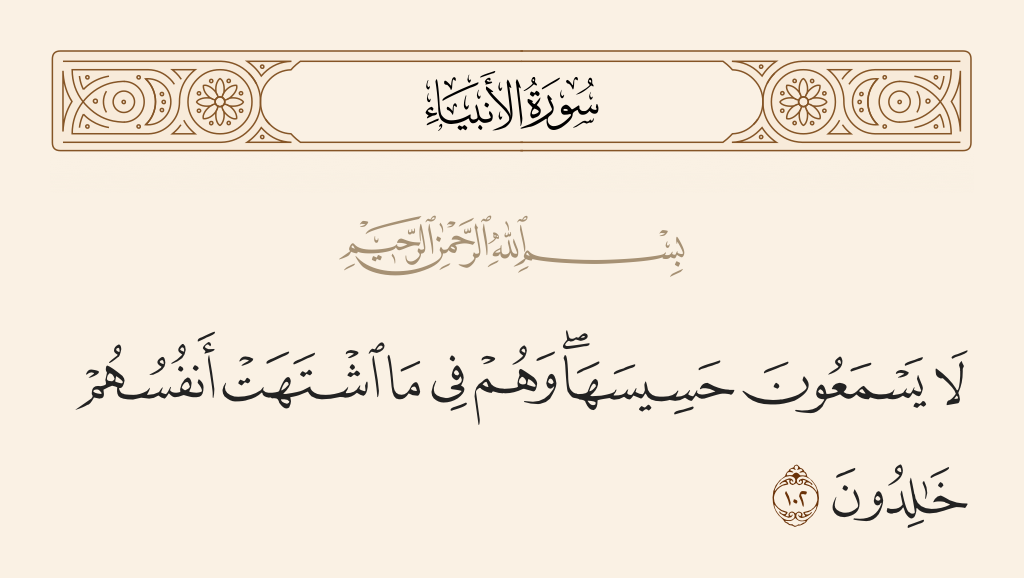 سُورَةُ الأَنبِيَاءِ
بِسْمِ ٱللَّهِ ٱلرَّحْمَٰنِ ٱلرَّحِيمِ
لَا يَسْمَعُونَ حَسِيسَهَا ۖ وَهُمْ فِى مَا ٱشْتَهَتْ أَنفُسُهُمْ
خَٰلِدُونَ ١٠٢